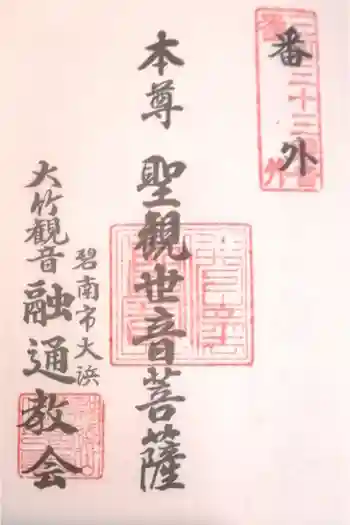 番外
本尊 聖観世音菩薩
碧南市大浜
大竹観音
融通教会